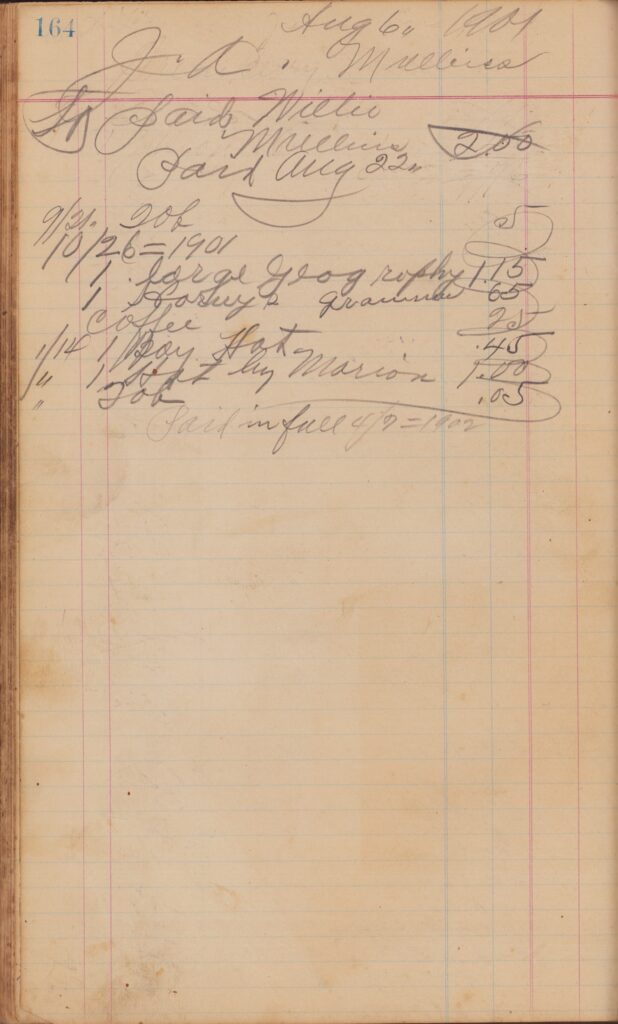 164
Aug 6" 1901
J. A. Mullins
Paid Willie
Mullins 2.00
Paid Aug 22"
9/21. Tob 25
10/26=1901
1 Large Geography 1.15
1 Harvy's Grammar 65
Coffee 25
1/14 1 Boy Hat .45
" 1 Hat by Marion 1.00
" Tob .05
Paid in full 4/7=1902